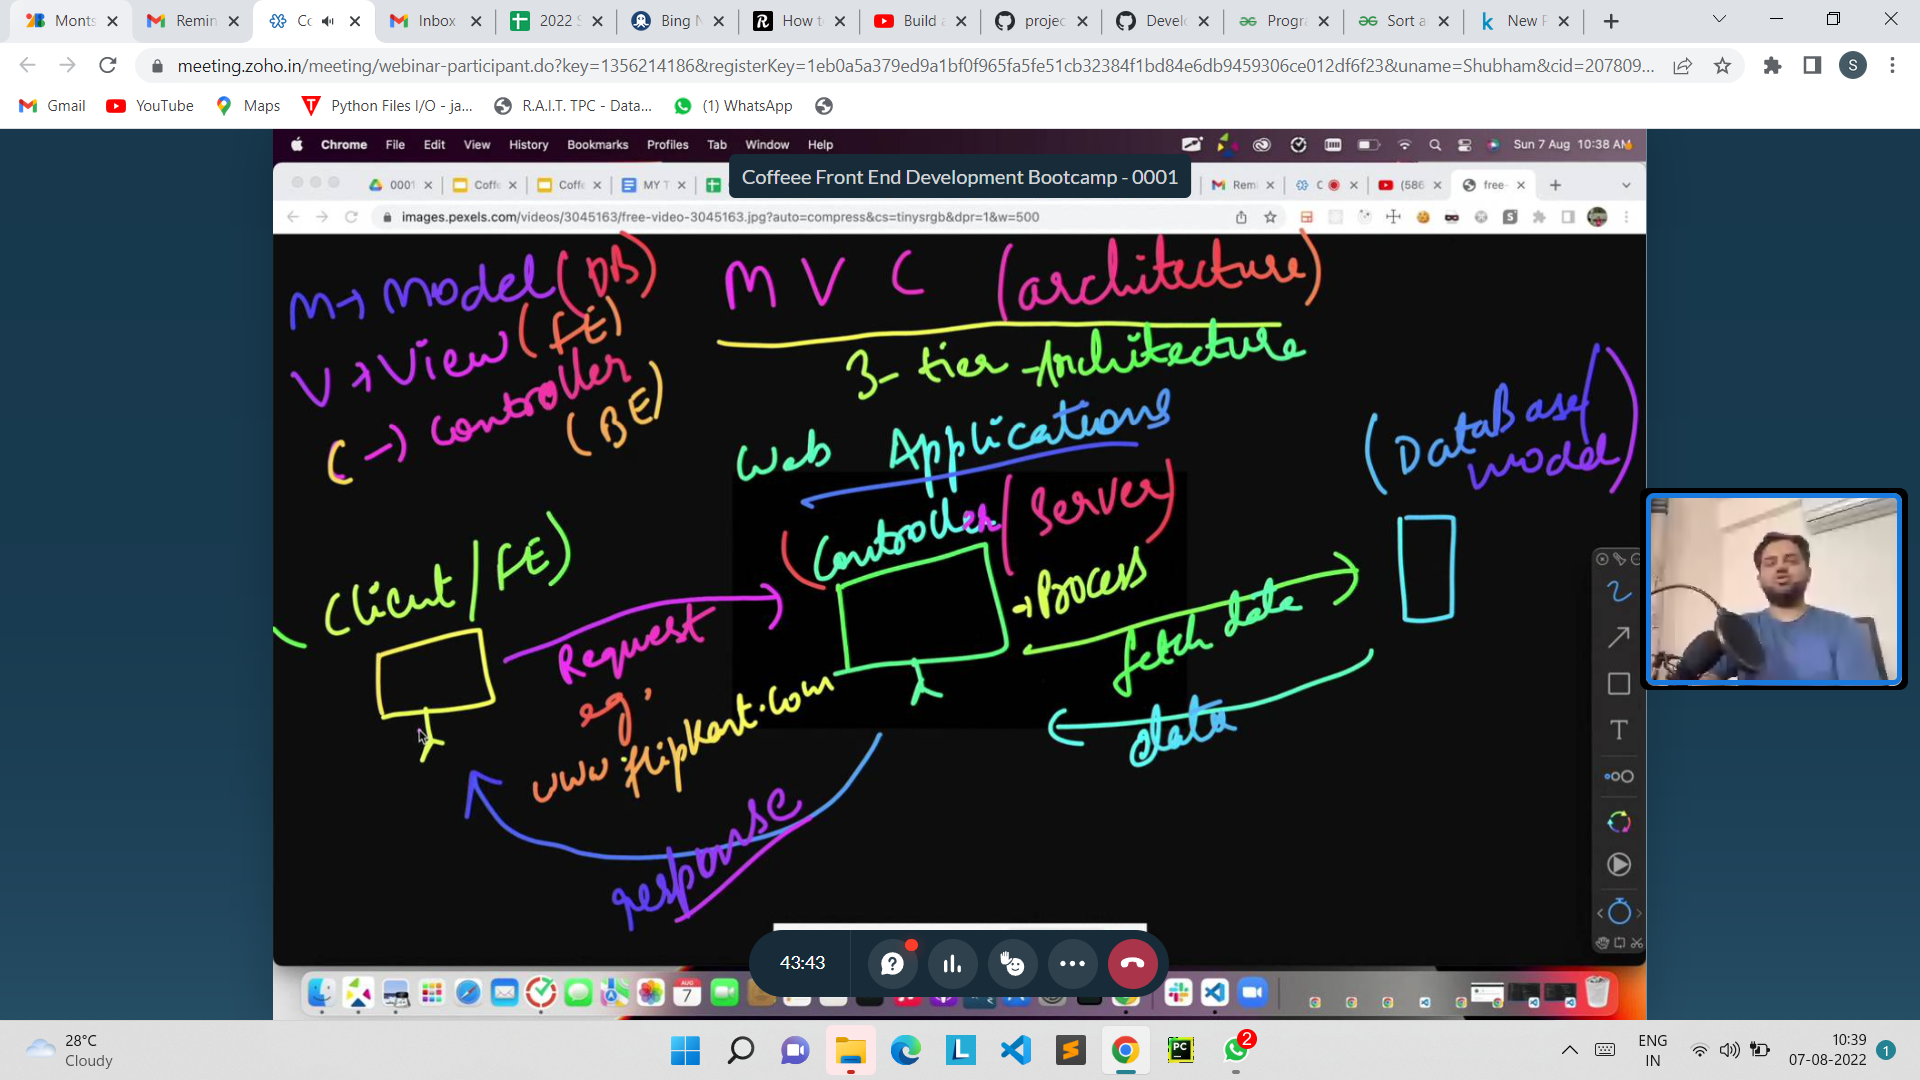 Monts
Remin
Co
Inbox
2022 S
Bing N
How to
Build a
projec
Develo
Progra
Sort a
New P
meeting.zoho.in/meeting/webinar-participant.do?key=1356214186&registerKey=1eb0a5a379ed9a1bf0f965fa5fe51cb32384f1bd84e6db9459306ce012df6f23&uname=Shubham&cid=207809...
S
Gmail
YouTube
Maps
Python Files I/O - ja...
R.A.I.T. TPC - Data...
(1) WhatsApp
Chrome File Edit View History Bookmarks Profiles Tab Window Help
Sun 7 Aug 10:38 AM
Coffeee Front End Development Bootcamp - 0001
0001
Coffe
Coffe
MY T
Remi
C
(586
free-
images.pexels.com/videos/3045163/free-video-3045163.jpg?auto=compress&cs=tinysrgb&dpr=1&w=500
M → Model (DB)
V → View (FE)
C → Controller
(BE)
M V C (architecture)
3-tier-Architecture
Web Applications
(DataBase/
Model)
(Controller/Server)
(Client/FE)
→ Process
Request
eg.
www.flipkart.com
fetch data
data
response
T
43:43
AUG
7
28°C
Cloudy
L
PC
2
ENG
IN
10:39
07-08-2022
1